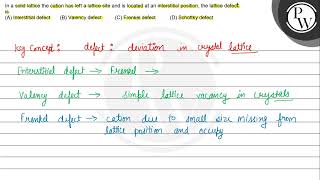 In a solid lattice the cation has left a lattice site and is located at an interstitial position, the lattice defect is
(A) Interstitial defect (B) Valency defect (C) Frenkel defect (D) Schottky defect
PW
Key Concept: defect: deviation in crystal lattice
Interstitial defect → Frenkel —
Valency defect → simple lattice vacancy in crystals
Frenkel defect → cation due to small size missing from
lattice position and occupy